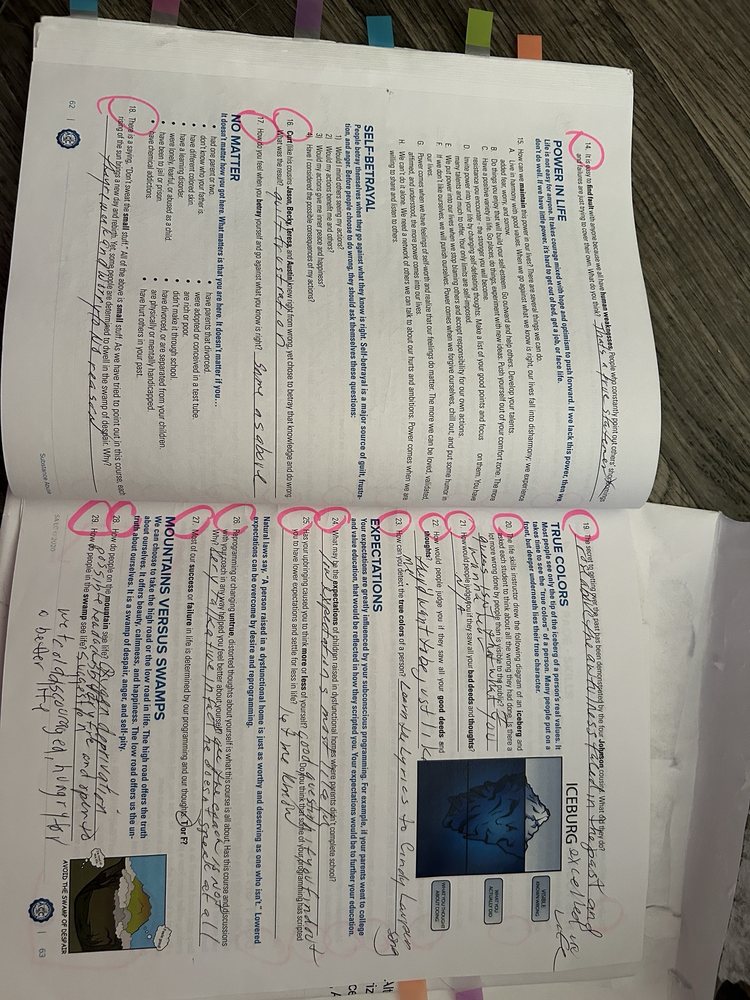 14. It is easy to find fault with anyone because we all have human weaknesses. People who constantly point out others' shortcomings
and failures are just trying to cover their own. What do you think? That's a true statement
POWER IN LIFE
Life is not easy for anyone. It takes courage mixed with hope and optimism to push forward. If we lack this power, then we
don't do well. If we have little power, it's hard to get out of bed, get a job, or face life.
15. How can we maintain this power in our lives? There are several things we can do.
A. Live in harmony with good values. When we go against what we know is right, our lives fall into disharmony; we experience
added fear, worry, and sorrow.
B. Do things you enjoy that will build your self-esteem. Go forward and help others. Develop your talents.
C. Have a positive variety in life. Go places, do things, experiment with new ideas. Push yourself out of your comfort zone. The more
resistance you encounter, the stronger you will become.
D. Invite power into your life by changing self-defeating thoughts. Make a list of your good points and focus on them. You have
many talents and much to offer. Your only limits are self-imposed.
E. We put power into our lives when we stop blaming others and accept responsibility for our own actions.
F. If we don't like ourselves, we will punish ourselves. Power comes when we forgive ourselves, chill out, and put some humor in
our lives.
G. Power comes when we have feelings of self-worth and realize that our feelings do matter. The more we can be loved, validated,
affirmed, and understood, the more power comes into our lives.
H. We can't do it alone. We need a network of others we can talk to about our hurts and ambitions. Power comes when we are
willing to share and listen to others.
SELF-BETRAYAL
People betray themselves when they go against what they know is right. Self-betrayal is a major source of guilt, frustra-
tion, and anger. Before people choose to do wrong, they should ask themselves these questions:
1) Would I mind others seeing my actions?
2) Would my actions benefit me and others?
3) Would my actions give me inner peace and happiness?
4) Have I considered the possible consequences of my actions?
16. Curt, like his cousins Jason, Becky, Teresa, and Austin, knew right from wrong, yet chose to betray that knowledge and do wrong.
What was the result? guilt frustration
17. How do you feel when you betray yourself and go against what you know is right? Same as above
NO MATTER
It doesn't matter how you got here. What matters is that you are here. It doesn't matter if you...
• had one parent or two.
• don't know who your father is.
• have different colored skin.
• have a learning disorder.
• were lonely, fearful, or abused as a child.
• have been to jail or prison.
• have chemical addictions.
• have parents that divorced.
• were adopted or conceived in a test tube.
• are rich or poor.
• didn't make it through school.
• have divorced, or are separated from your children.
• are physically or mentally handicapped.
• have hurt others in your past.
18. There is a saying, "Don't sweat the small stuff." All of the above is small stuff. As we have tried to point out in this course, each
rising of the sun brings a new day and rebirth. Yet, some people are determined to dwell in the swamp of despair. Why?
62
Substance Abuse
19. The secret to getting over the past has just been demonstrated by the four Johnson cousins. What did they do?
TRUE COLORS
Most people see only the tip of the iceberg of a person's real values. It
takes time to see the "true colors" of a person. Many people put on a
front, but deeper underneath lies their true character.
20. The life skills instructor drew the following diagram of an iceberg and
asked each student to think about all the wrong they had done. Is there a
lot more wrong done by people than is visible to the public?
21. How would people judge you if they saw all your bad deeds and thoughts?
N/A
22. How would people judge you if they saw all your good deeds and
thoughts? They'd want to be just like
me.
23. How can you detect the true colors of a person? Learn the lyrics to Cyndy Lauper
song
ICEBURG
VISIBLE
KNOWN WRONG
WHAT YOU
ACTUALLY DID
WHAT YOU THOUGHT
ABOUT DOING
EXPECTATIONS
Your expectations are greatly influenced by your subconscious programming. For example, if your parents went to college
and value education, that would be reflected in how they scripted you. Your expectations would be to further your education.
24. What may be the expectations of children raised in dysfunctional homes where parents didn't complete school?
25. Has your upbringing caused you to think more or less of yourself? Do you think that some of your programming has scripted
you to have lower expectations and settle for less in life? good question if you find out
let me know
Natural laws say, "A person raised in a dysfunctional home is just as worthy and deserving as one who isn't." Lowered
expectations can be overcome by desire and reprogramming.
26. Reprogramming or changing untrue, distorted thoughts about yourself is what this course is all about. Has this course and discussions
with your coach in any way helped you feel better about yourself?
Why?
27. Most of our success or failure in life is determined by our programming and our thoughts. T or F?
MOUNTAINS VERSUS SWAMPS
We can choose to take the high road or the low road in life. The high road offers the truth
about ourselves. It offers beauty, calmness, and happiness. The low road offers us the un-
truth about ourselves. It is a swamp of despair, anger, and self-pity.
28. How do people on the mountain see life?
29. How do people in the swamp see life?
a better life
AVOID THE SWAMP OF DESPAIR
63